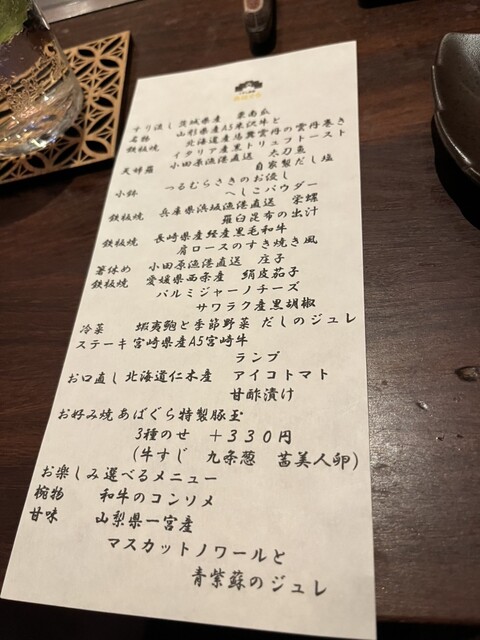 すり流し 茨城県産 栗南瓜
名物 山形県産A5米沢牛と
北海道産馬糞雲丹の雲丹巻き
鉄板焼 イタリア産黒トリュフトースト
天婦羅 小田原漁港直送 太刀魚
自家製だし塩
小鉢 つるむらさきのお浸し
へしこパウダー
鉄板焼 兵庫県浜坂漁港直送 栄螺
羅臼昆布の出汁
鉄板焼 長崎県産経産黒毛和牛
肩ロースのすき焼き風
箸休め 小田原漁港直送 庄子
鉄板焼 愛媛県西条産 絹皮茄子
パルミジャーノチーズ
サワラク産黒胡椒
冷菜 蝦夷鮑と季節野菜 だしのジュレ
ステーキ 宮崎県産A5宮崎牛
ランプ
お口直し 北海道仁木産 アイコトマト
甘酢漬け
お好み焼 あばぐら特製豚玉
3種のせ +330円
(牛すじ 九条葱 茜美人卵)
お楽しみ選べるメニュー
椀物 和牛のコンソメ
甘味 山梨県一宮産
マスカットノワールと
青紫蘇のジュレ